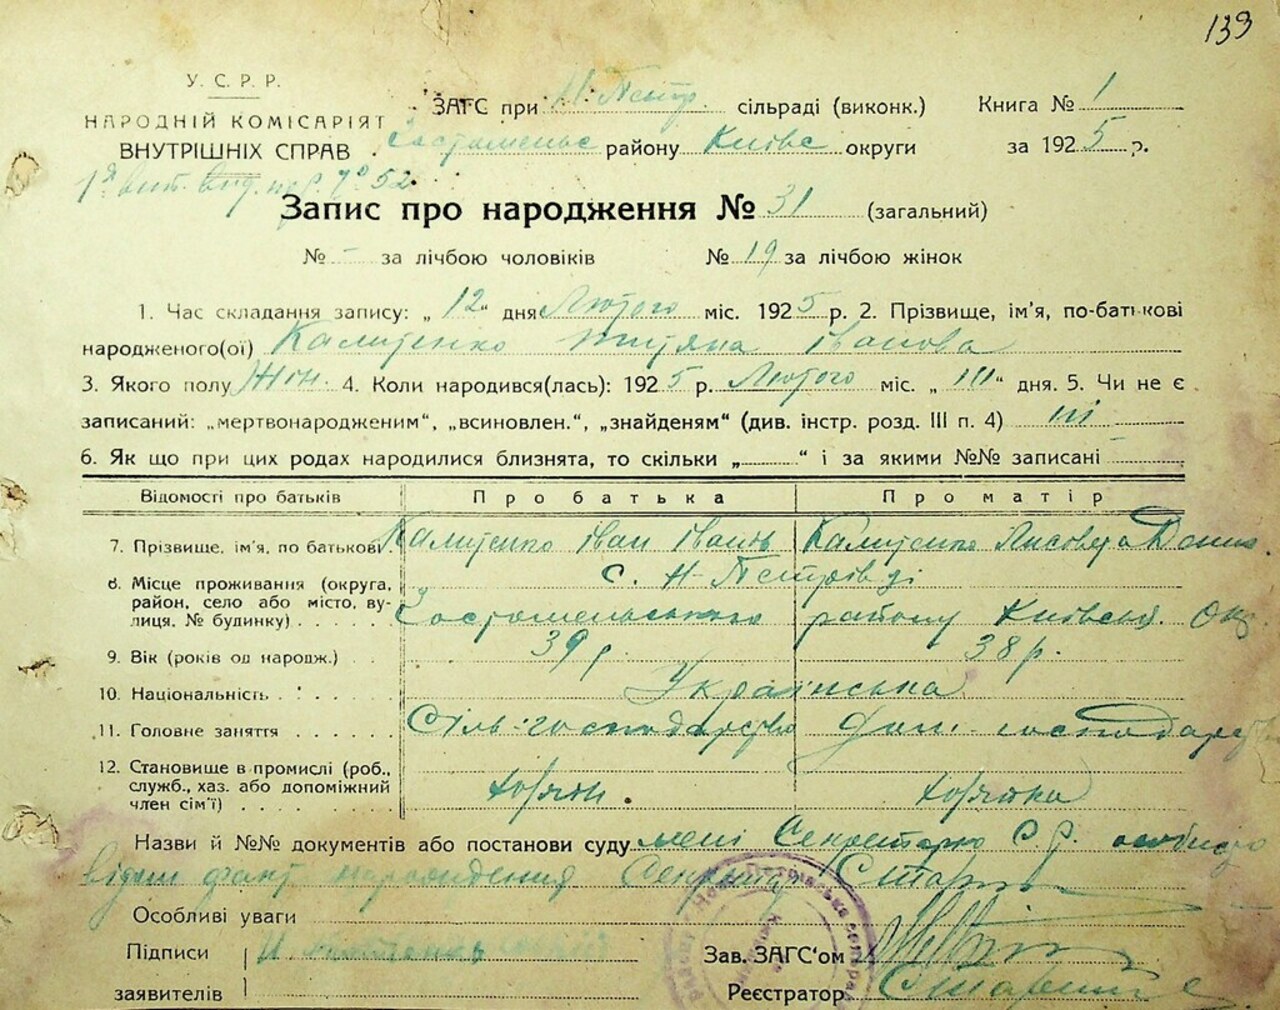 139
У. С. Р. Р.
НАРОДНІЙ КОМІСАРІЯТ
ВНУТРІШНІХ СПРАВ
ЗАГС при Н-Петр. сільраді (виконк.)
районy Київс округи
Книга № 1
за 1925 р.
Запис про народження № 31 (загальний)
№ - за лічбою чоловіків № 19 за лічбою жінок
1. Час складання запису: „12“ дня Лютого міс. 1925 р. 2. Прізвище, ім'я, по-батькові
народженого(ої) Калитенко Титяна Іванова
3. Якого полу Жін. 4. Коли народився(лась): 1925 р. Лютого міс. „III“ дня. 5. Чи не є
записаний: „мертвонародженим“, „всиновлен.“, „знайденям“ (див. інстр. розд. III п. 4) ні
6. Як що при цих родах народилися близнята, то скільки „ “ і за якими №№ записані
Відомості про батьків Про батька Про матір
7. Прізвище, ім'я, по батькові Калитенко Іван Іванів Калитенко
8. Місце проживання (округа, район, село або місто, вулиця, № будинку) с. Н-Петрівці
Гостомельського району Київськ. Окр.
9. Вік (років од народж.) 39 р. 38 р.
10. Національність Українська
11. Головне заняття Сіль-господарство Дом. господарств
12. Становище в промислі (роб., служб., хаз. або допоміжний член сім'ї) хозяїн. хозяйка
Назви й №№ документів або постанови суду мені Секретарю С. Р. особисто
відом факт народження Секретар
Особливі уваги
Підписи
заявителів
Зав. ЗАГС'ом
Реєстратор